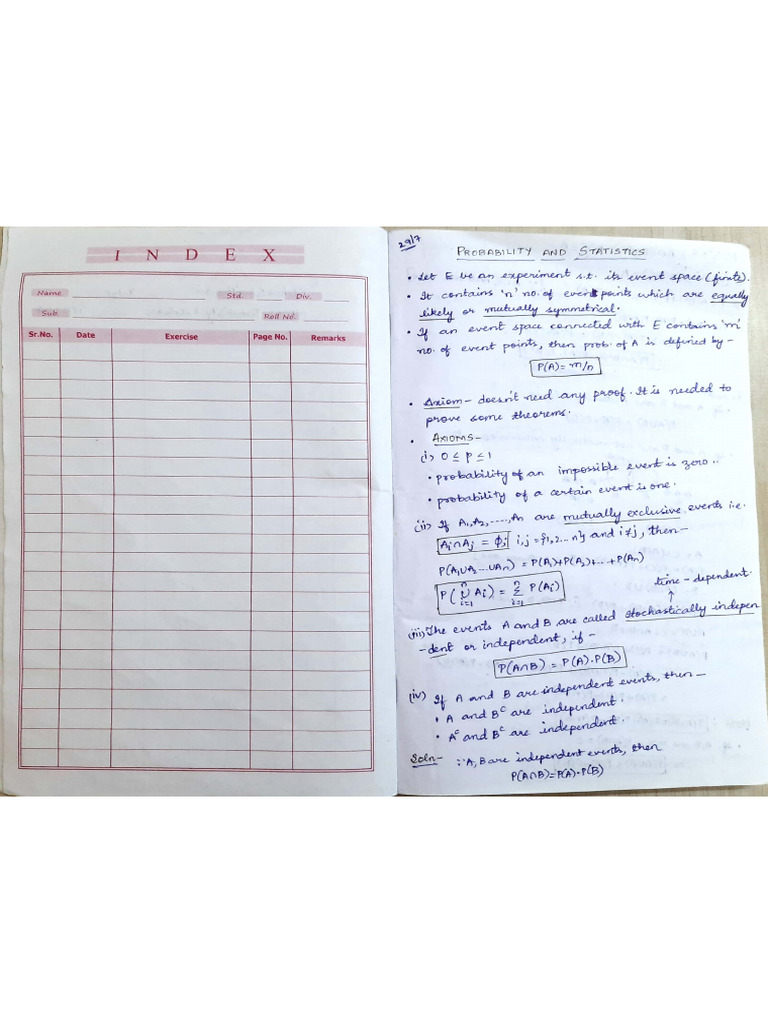 INDEX
Name
Std.
Div.
Sub.
Roll No.
Sr.No.
Date
Exercise
Page No.
Remarks
29/7
PROBABILITY AND STATISTICS
• Let E be an experiment s.t. its event space (finite).
• It contains 'n' no. of event points which are equally
likely or mutually symmetrical.
• If an event space connected with E contains 'm'
no. of event points, then prob. of A is defined by -
P(A) = m/n
• Axiom - doesn't need any proof. It is needed to
prove some theorems.
• AXIOMS -
(i) 0 ≤ p ≤ 1
• probability of an impossible event is zero..
• probability of a certain event is one.
(ii) If A₁, A₂, ...., An are mutually exclusive events i.e.
Ai∩Aj = ϕ; i,j = {1,2... n} and i≠j, then -
P(A₁∪A₂...∪An) = P(A₁)+P(A₂)+...+P(An)
P(⋃ⁿᵢ₌₁ Ai) = Σⁿᵢ₌₁ P(Ai)
time-dependent.
↑
(iii) The events A and B are called stochastically indepen
-dent or independent, if -
P(A∩B) = P(A).P(B)
(iv) If A and B are independent events, then -
• A and Bᶜ are independent.
• Aᶜ and Bᶜ are independent.
Soln - ∵ A, B are independent events, then
P(A∩B)=P(A).P(B)